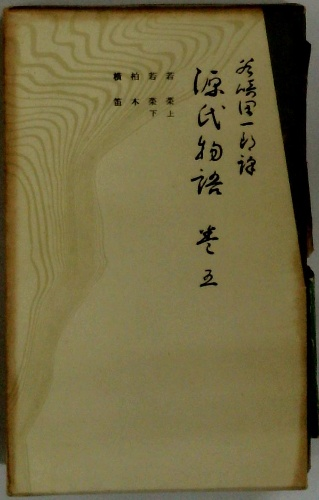 谷崎潤一郎譯
源氏物語 巻五
若菜上
若菜下
柏木
横笛